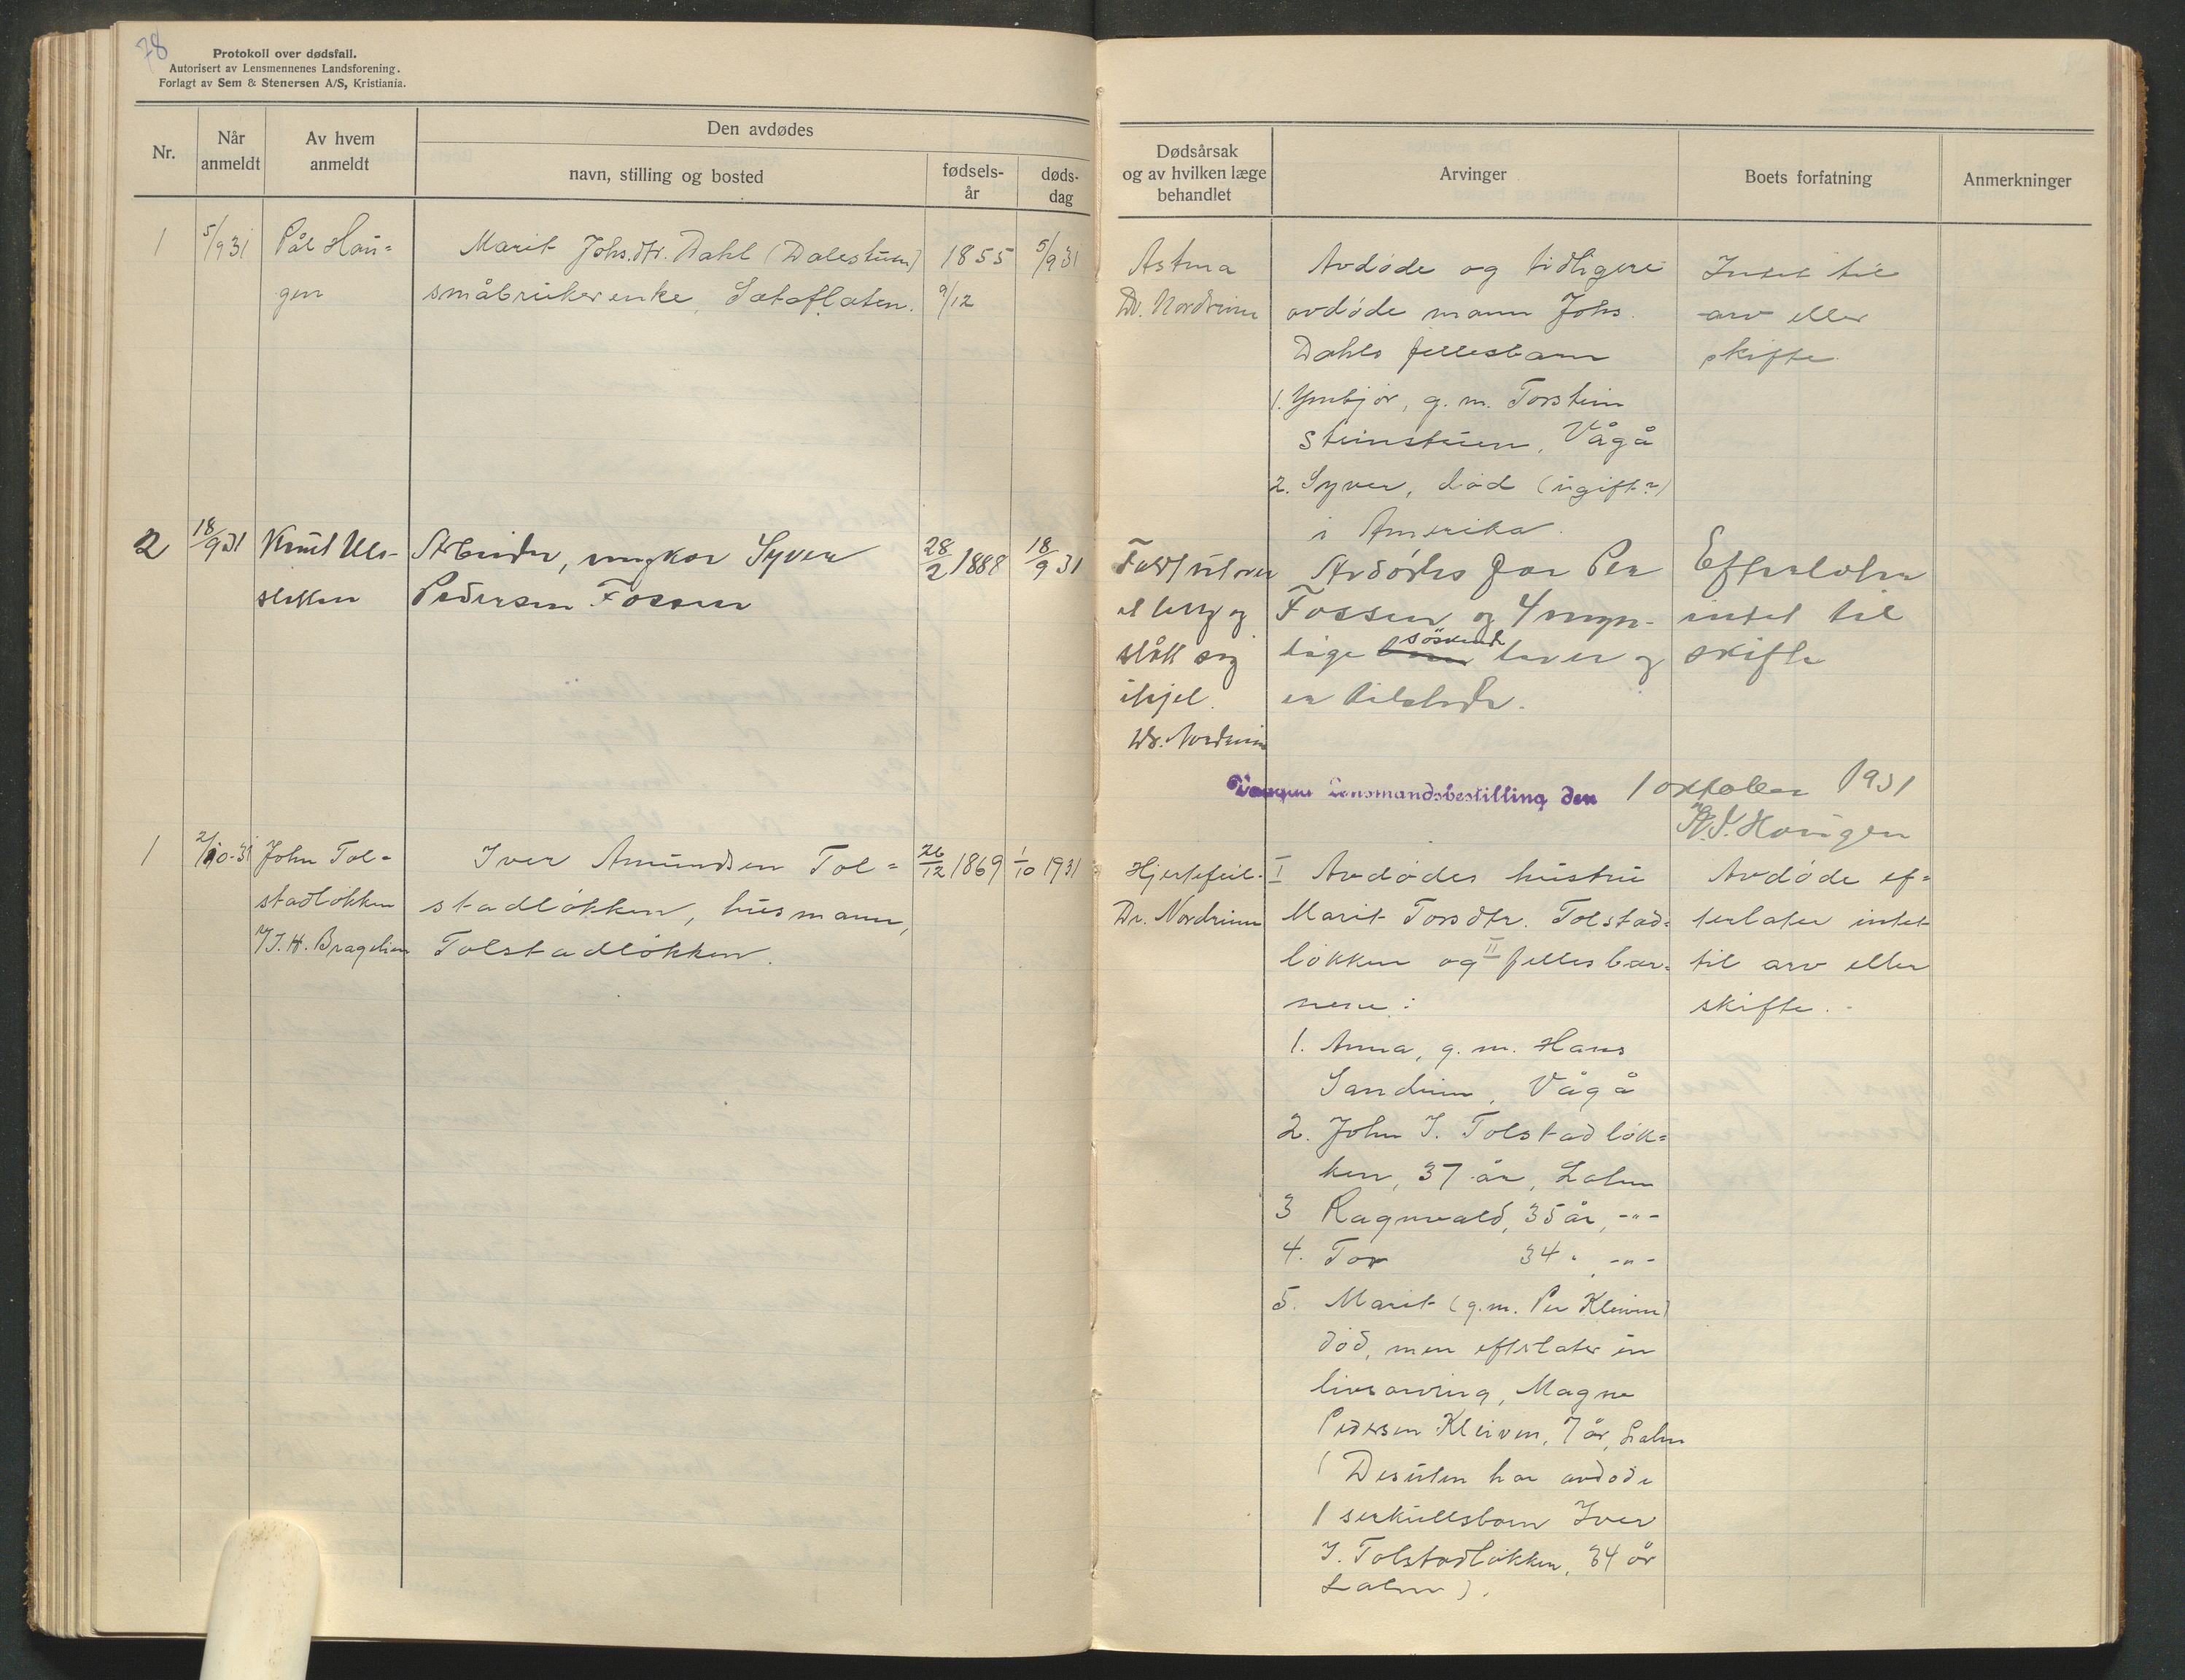 78
Protokoll over dødsfall.
Autorisert av Lensmennenes Landsforening.
Forlagt av Sem & Stenersen A/S, Kristiania.
Nr.
Når anmeldt
Av hvem anmeldt
Den avdødes
navn, stilling og bosted
fødsels-år
døds-dag
Dødsårsak og av hvilken læge behandlet
Arvinger
Boets forfatning
Anmerkninger
1
5/9 31
Pål Hau=
gen
Marit Johs.dtr. Dahl (Dalestuen)
småbrukerenke, Sætaflaten.
1855
9/12
5/9 31
Astma
Dr. Nordrum
Avdøde og tidligere
avdøde mann Johs.
Dahls fellesbarn
1. Ymbjør, g. m. Torstein
Steinstuen, Vågå
2. Syver, død (ugift?)
i Amerika.
Intet til
arv eller
skifte.
2
18/9 31
Knut
Arbeider, ungkar Syver
Pedersen Fossen
28/2 1888
18/9 31
Faldt utover
et berg og
slått sig
ihjel.
Dr. Nordrum
Avdødes far Per
Fossen og 4 myn-
dige søskende lever og
er tilstede.
Efterlater
intet til
skifte
Lensmandsbestilling den 1 oktober 1931
P. J. Haugen
1
2/10-31
John Tol=
stadløkken
v/ I. H. Bragelien
Iver Amundsen Tol=
stadløkken, husmann,
Tolstadløkken.
26/12 1869
1/10 1931
Hjertefeil.
Dr. Nordrum
I Avdødes hustru
Marit Torsdtr. Tolstad=
løkken og II fellesbar=
nene:
1. Anna, g. m. Hans
Sandum, Vågå
2. John I. Tolstadløk=
ken, 37 år, Lalm
3 Ragnvald, 35 år, -"-
4. Tor 34 " , -"-
5. Marit (g. m. Per Kleiven)
død, men efterlater én
livsarving, Magne
Pedersen Kleiven, 7 år, Lalm
(Desuten har avdøde
1 særkullsbarn Iver
I. Tolstadløkken, 34 år
Lalm).
Avdøde ef=
terlater intet
til arv eller
skifte.-